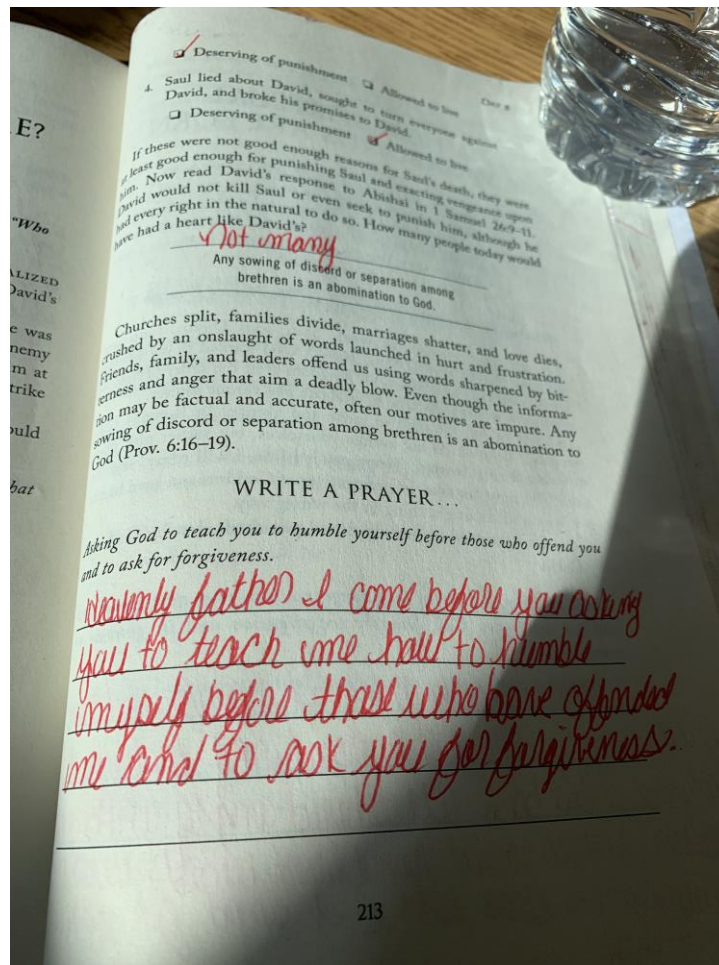 E?
"Who
ALIZED
David's
e was
nemy
m at
trike
ould
hat
Deserving of punishment Allowed to live
DAY 8
4. Saul lied about David, sought to turn everyone against
David, and broke his promises to David.
Deserving of punishment Allowed to live
If these were not good enough reasons for Saul's death, they were
at least good enough for punishing Saul and exacting vengeance upon
him. Now read David's response to Abishai in 1 Samuel 26:9–11.
David would not kill Saul or even seek to punish him, although he
had every right in the natural to do so. How many people today would
have had a heart like David's?
not many
Any sowing of discord or separation among
brethren is an abomination to God.
Churches split, families divide, marriages shatter, and love dies,
crushed by an onslaught of words launched in hurt and frustration.
Friends, family, and leaders offend us using words sharpened by bit-
terness and anger that aim a deadly blow. Even though the informa-
tion may be factual and accurate, often our motives are impure. Any
sowing of discord or separation among brethren is an abomination to
God (Prov. 6:16–19).
WRITE A PRAYER...
Asking God to teach you to humble yourself before those who offend you
and to ask for forgiveness.
Heavenly father I come before you asking
you to teach me how to humble
myself before those who have offended
me and to ask you for forgiveness.
213